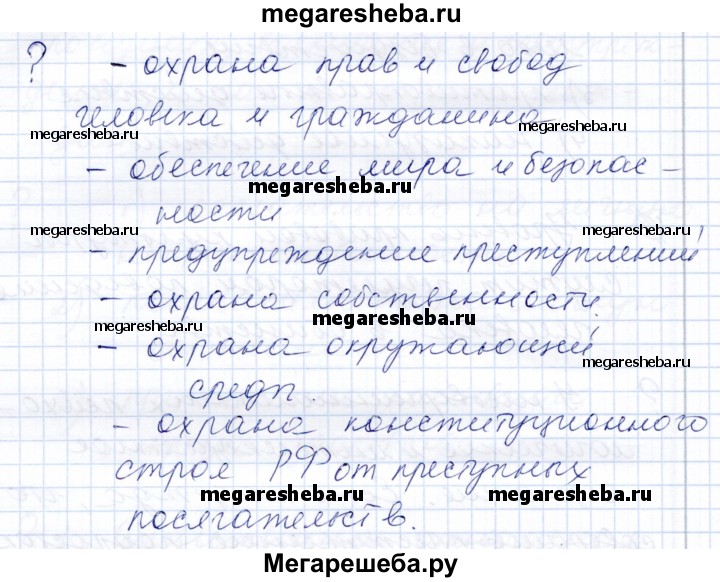 megaresheba.ru
? - охрана прав и свобод
человека и гражданина
megaresheba.ru megaresheba.ru
- обеспечение мира и безопас -
megaresheba.ru
ности
megaresheba.ru megaresheba.ru
- предупреждение преступлений,
- охрана собственности.
megaresheba.ru megaresheba.ru
- охрана окружающий
megaresheba.ru
среды.
- охрана конституционного
строя РФ от преступных
megaresheba.ru megaresheba.ru
посягательств.
Мегарешеба.ру